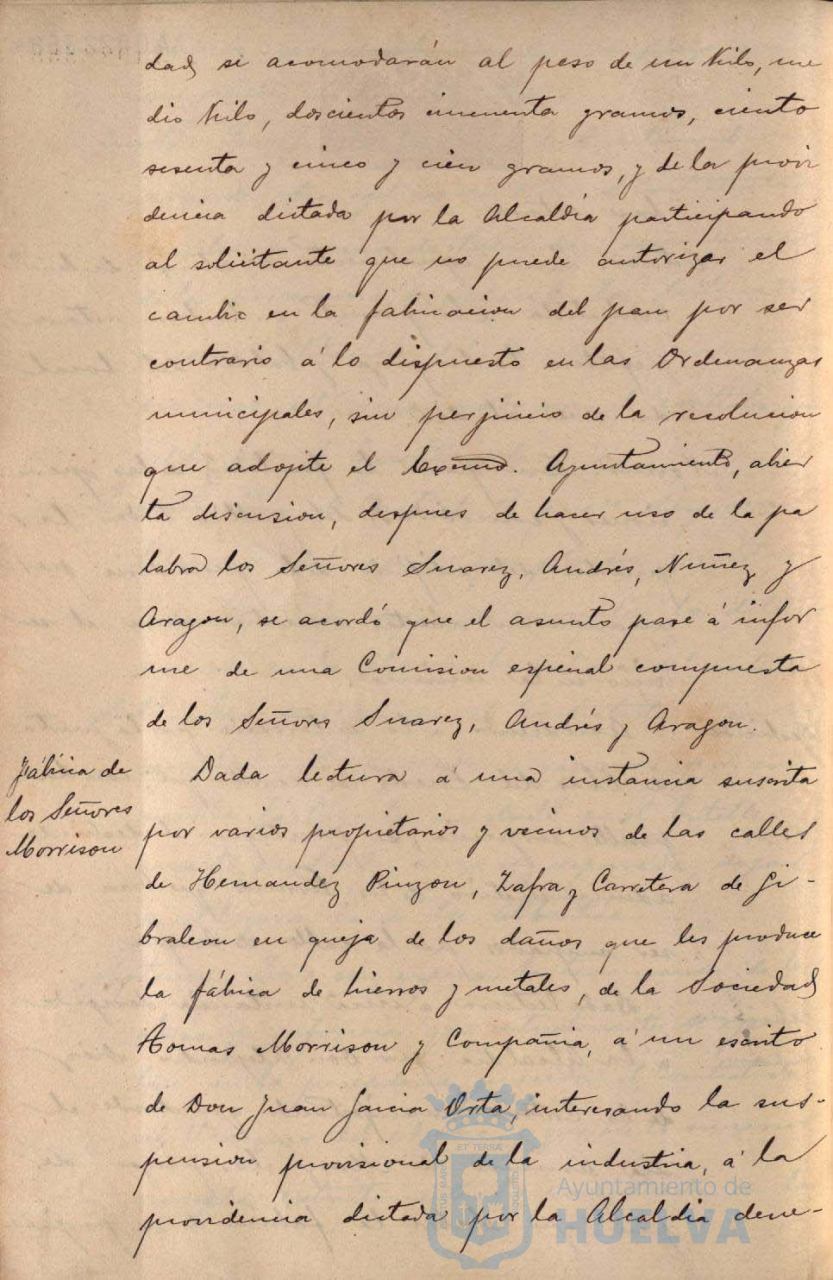 dad se acomodarán al peso de un Kilo, me
dio Kilo, doscientos cincuenta gramos, ciento
sesenta y cinco y cien gramos, y de la provi
dencia dictada por la Alcaldía participando
al solicitante que no puede autorizar el
cambio en la fabricacion del pan por ser
contrario á lo dispuesto en las Ordenanzas
municipales, sin perjuicio de la resolucion
que adopte el Excmo. Ayuntamiento, abier
ta discusion, despues de hacer uso de la pa
labra los Señores Suarez, Andrés, Nuñez y
Aragon, se acordó que el asunto pase á infor
me de una Comision especial compuesta
de los Señores Suarez, Andrés y Aragon.
Fábrica de
los Señores
Morrison
Dada lectura á una instancia suscrita
por varios propietarios y vecinos de las calles
de Hernandez Pinzon, Zafra y Carretera de Gi-
braleon en queja de los daños que les produce
la fábrica de hierros y metales, de la Sociedad
Tomas Morrison y Compañia, á un escrito
de Don Juan Garcia Orta, interesando la sus-
pension provisional de la industria, á la
providencia dictada por la Alcaldía dene-
ET TERRÆ
Ayuntamiento de
HUELVA